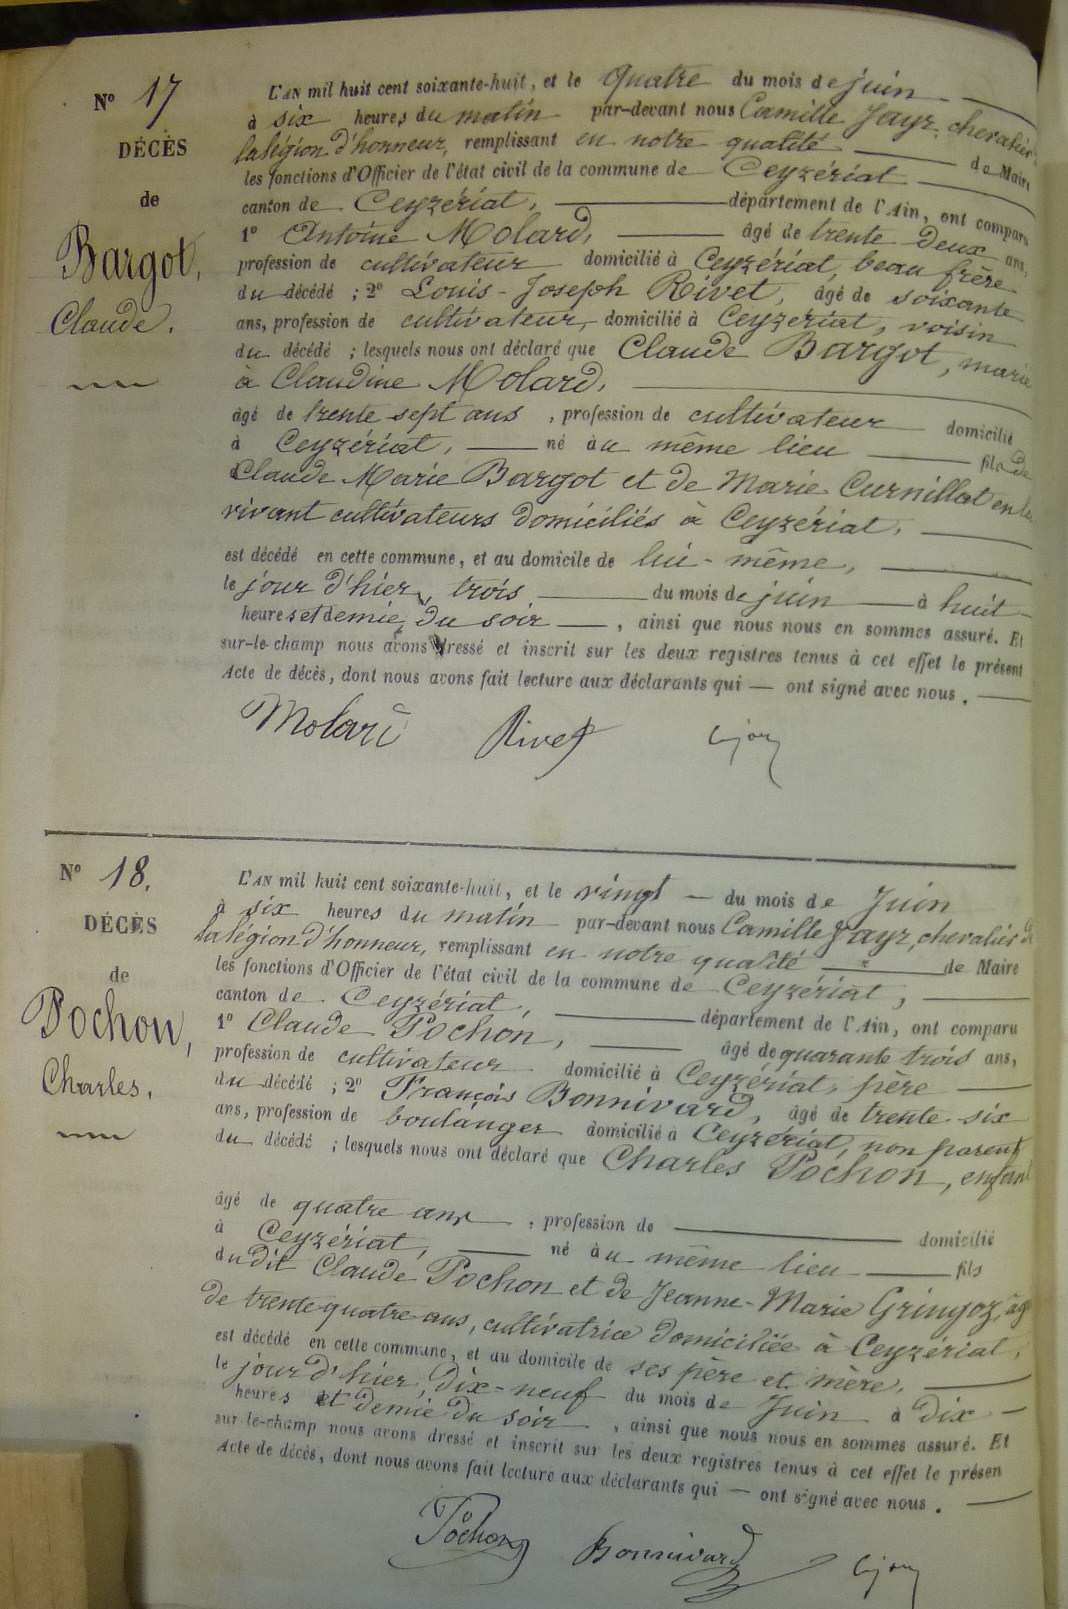 N° 17
DÉCÈS
de
Bargot,
Claude.
L'AN mil huit cent soixante-huit, et le quatre du mois de juin
à six heures du matin par-devant nous Camille Jayr, chevalier
la légion d'honneur, remplissant en notre qualité de Maire
les fonctions d'Officier de l'état civil de la commune de Ceyzériat
canton de Ceyzériat, département de l'Ain, ont comparu
1° Antoine Molard, âgé de trente deux ans,
profession de cultivateur domicilié à Ceyzériat, beau frère
du décédé ; 2° Louis-Joseph Rivet, âgé de soixante
ans, profession de cultivateur, domicilié à Ceyzériat, voisin
du décédé ; lesquels nous ont déclaré que Claude Bargot, marié
à Claudine Molard,
âgé de trente sept ans , profession de cultivateur domicilié
à Ceyzériat, né au même lieu fils de
Claude Marie Bargot et de Marie Curnillat en leur
vivant cultivateurs domiciliés à Ceyzériat,
est décédé en cette commune, et au domicile de lui-même,
le jour d'hier, trois du mois de juin à huit
heures et demie du soir , ainsi que nous nous en sommes assuré. Et
sur-le-champ nous avons dressé et inscrit sur les deux registres tenus à cet effet le présent
Acte de décès, dont nous avons fait lecture aux déclarants qui — ont signé avec nous .
Molard Rivet
N° 18.
DÉCÈS
de
Pochon,
Charles.
L'AN mil huit cent soixante-huit, et le vingt — du mois de Juin
à six heures du matin par-devant nous Camille Jayr, chevalier de
la légion d'honneur, remplissant en notre qualité de Maire
les fonctions d'Officier de l'état civil de la commune de Ceyzériat,
canton de Ceyzériat, département de l'Ain, ont comparu
1° Claude Pochon, âgé de quarante trois ans,
profession de cultivateur domicilié à Ceyzériat, père
du décédé ; 2° François Bonnivard, âgé de trente-six
ans, profession de boulanger domicilié à Ceyzériat, non parent
du décédé ; lesquels nous ont déclaré que Charles Pochon, enfant
âgé de quatre ans , profession de domicilié
à Ceyzériat, né au même lieu fils
dudit Claude Pochon et de Jeanne-Marie Gringoz, âgé
de trente quatre ans, cultivatrice domiciliée à Ceyzériat,
est décédé en cette commune, et au domicile de ses père et mère,
le jour d'hier, dix-neuf du mois de Juin à dix
heures et demie du soir , ainsi que nous nous en sommes assuré. Et
sur-le-champ nous avons dressé et inscrit sur les deux registres tenus à cet effet le présen
Acte de décès, dont nous avons fait lecture aux déclarants qui — ont signé avec nous .
Pochon Bonnivard